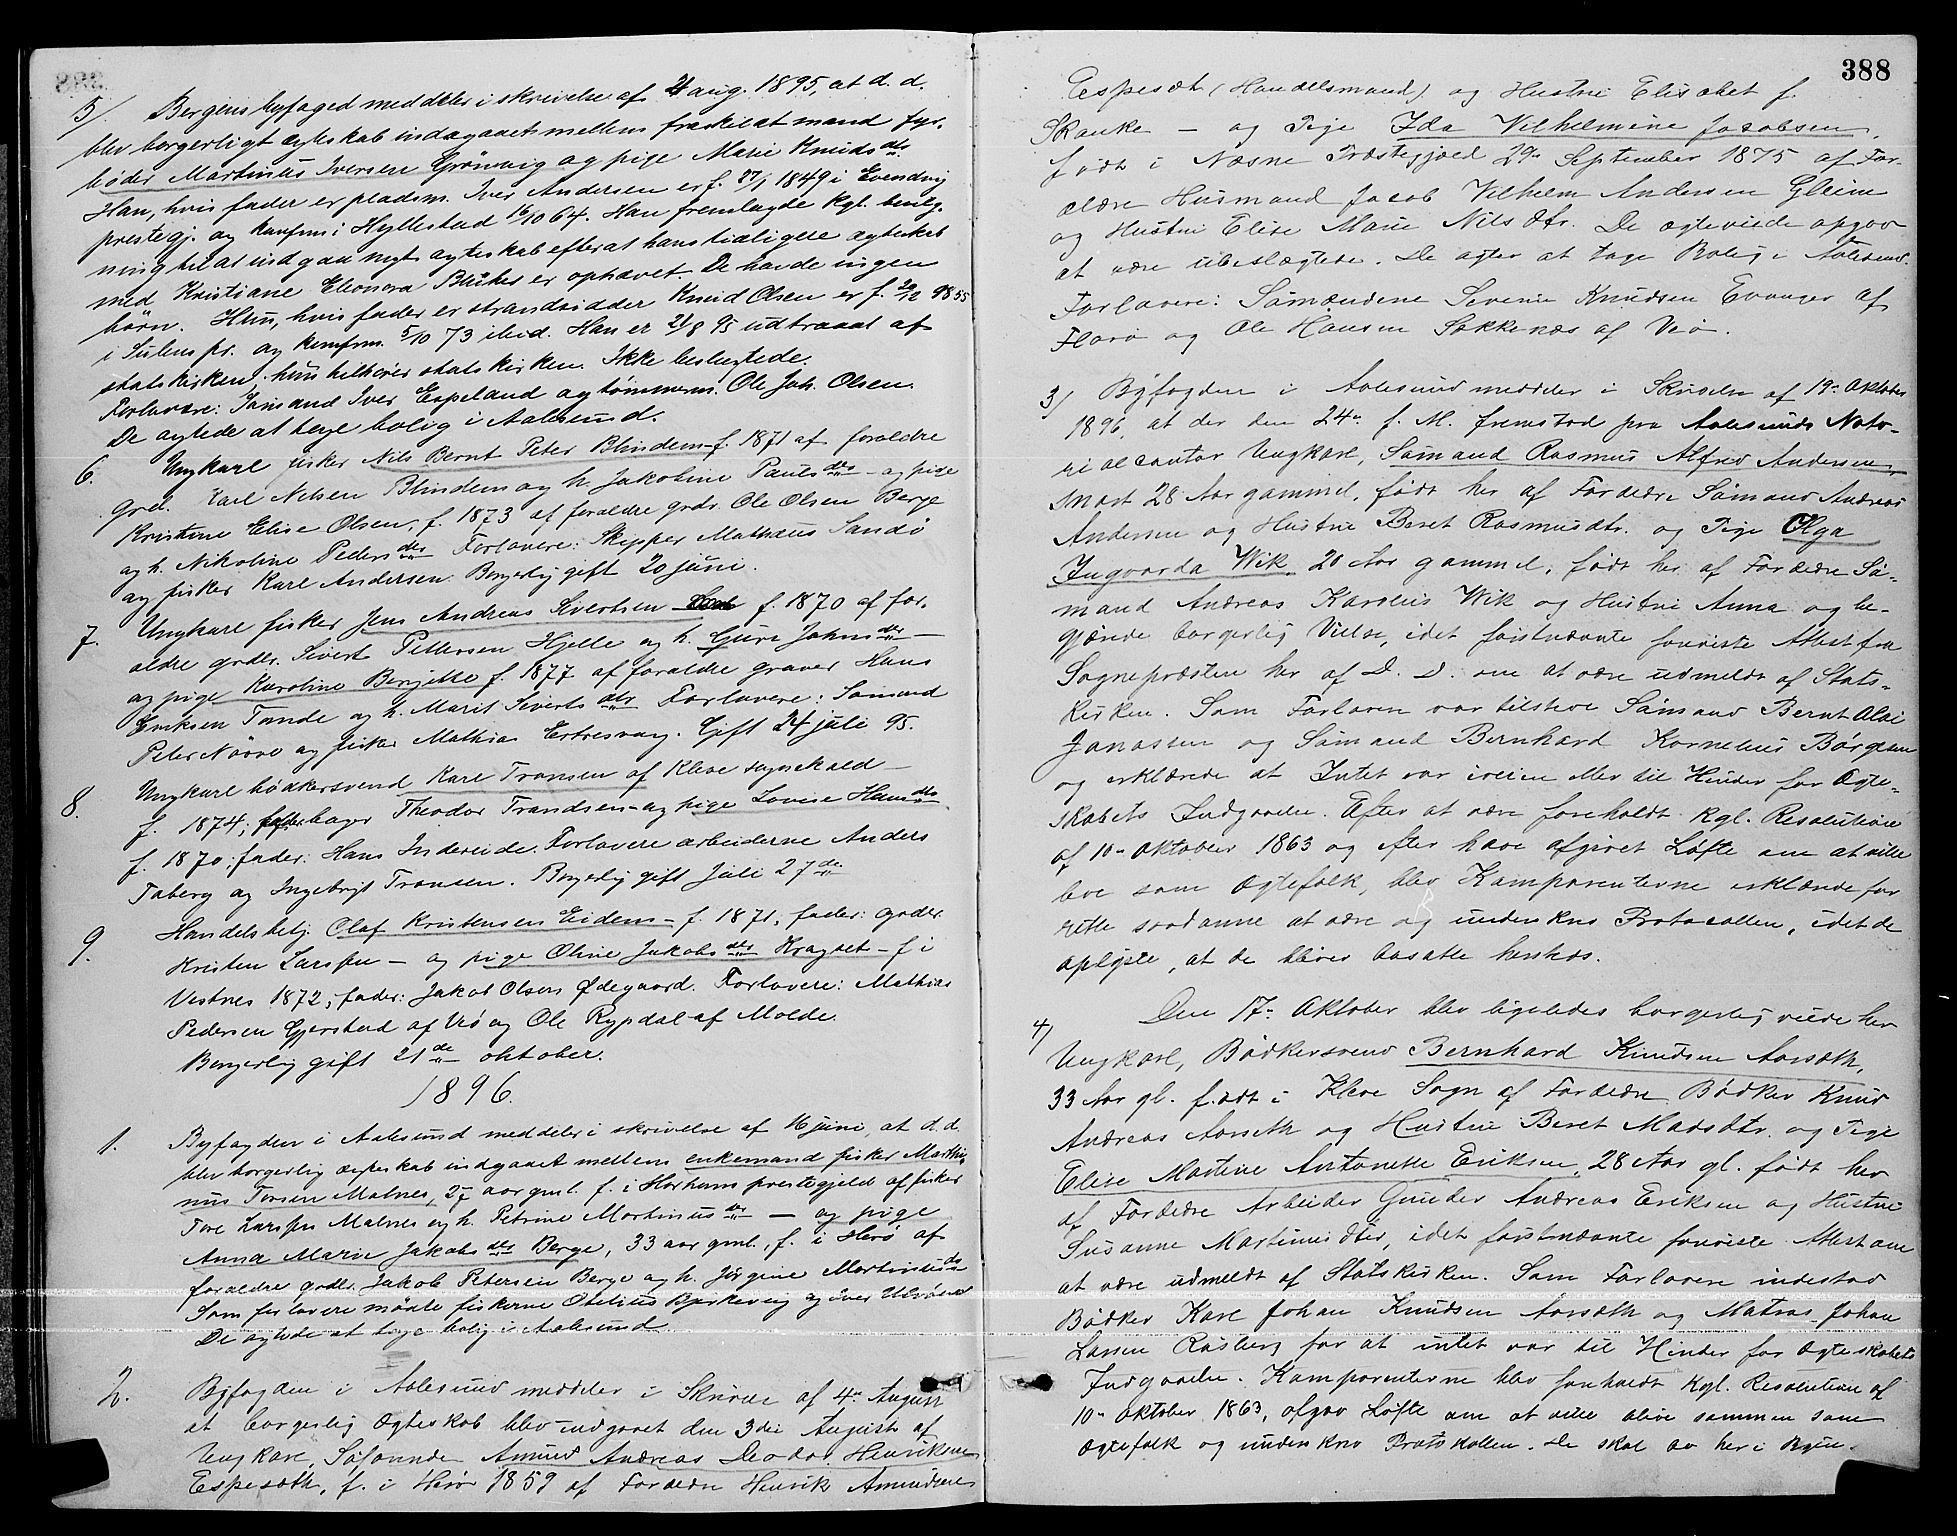 5/. Bergens byfoged meddeler i skrivelse af 21 aug. 1895, at d. d.
blev borgerligt ægteskab indgaaet mellem fraskilat mand fyr-
bøder Martinus Iversen Grönvig og pige Marie Knudsdtr.
Han, hvis fader er pladsm. Iver Andersen er f. 27/1 1849 i Evendvig
prestegj. og konfirm. i Hyllestad 16/10 64. Han fremlagde kgl. bevilg-
ning til at indgaa nyt ægteskab efterat hans tidligere ægteskab
med Kristiane Eleonora er ophævet. De havde ingen
børn. Hun, hvis fader er strandsidder Knud Olsen er f. 20/12 1855
i Sulens pr. og konfirm. 5/10 73 ibid. Han er 21/8 95 udtraadt af
statskirken; hun tilhører statskirken. Ikke beslegtede.
Forlovere: Sømand Iver Espeland og tømmerm. Ole Joh. Olsen.
De agtede at tage bolig i Aalesund.
6. Ungkarl fisker Nils Bernt Peter Blindem f. 1871 af foraldre
grd. Karl Nilsen Blindem og h. Jakobine Paulsdtr – og pige
Kristine Elise Olsen, f. 1873 af foraldre grdr. Ole Olsen Berge
og h. Nikoline Pedersdtr. Forlovere: Skipper Mathæus Sandö
og fisker Karl Andersen. Borgerlig gift 20 juni.
7. Ungkarl fisker Jens Andreas Sivertsen f. 1870 af for-
aldre grdr. Sivert Pettersen Hjelle og h. Guri Johnsdtr –
og pige Karoline Bergitte f. 1877 af foraldre graver Hans
Eriksen Tande og h. Marit Sivertsdtr. Forlovere: Sømand
Peter Nörve og fisker Mathias Ertresvaag. Gift 24 juli 95.
8. Ungkarl bødkersvend Karl Transen af Kleve sognekald –
f. 1874; fader bager Theodor Trandsen og pige Lovise Hansdtr
f. 1870; fader: Hans Indreeide. Forlovere arbeiderne Anders
Taberg og Ingebrigt Transen. Borgerlig gift Juli 27de
9. Handelsbetj. Olaf Kristensen Eidem – f. 1871, fader: grdr.
Kristen Larsen – og pige Oline Jakobsdtr Kragset – f. i
Vestnes 1872; fader: Jakob Olsen Ødegaard. Forlovere: Mathias
Pedersen Gjerstad af Veö og Ole Rypdal af Molde.
Borgerlig gift 21de oktober.
1896.
1. Byfogden i Aalesund meddeler i skrivelse af 16 juni, at d. d.
blev borgerlig ægteskab indgaaet mellem enkemand fisker Marthi-
nus Toresen Malnes, 27 aar gml. f. i Horhams prestegjeld af fisker
Tore Larsen Malnes og h. Petrine Martinusdtr – og pige
Anna Marie Jakobsdtr Berge, 33 aar gml., f. i Herø af
foraldre grdr. Jakob Petersen Berge og h. Jørgine Martinusdtr
Som forlovere mødte fiskerne Otelius Bjerkevig og Iver
De agtede at tage bolig i Aalesund.
2. Byfogden i Aalesund meddeler i Skrivelse af 4de August
at borgerlig Ægteskab blev indgaaet den 3die August af
Ungkarl, Søfarende Amund Andreas Henriksen
Espesæth, f. i Herø 1859 af Forældre Henrik Amundsen
388
Espesæt (Handelsmand) og Hustru Elisabet f.
Skanke – og Pige Ida Vilhelmine Jacobsen,
født i Næsne Præstegjæld 29de September 1875 af For-
ældre Husmand Jacob Vilhelm Andersen Gleine
og Hustru Elise Marie Nilsdtr. De ægteviede opgav
at være ubeslægtede. De agter at tage Bolig i Aalesund.
Forlovere: Sømændene Severin Knudsen Evanger af
Florø og Ole Hansen Sekkenæs af Veø.
3/ Byfogden i Aalesund meddeler i Skrivelse af 19de Oktober
1896, at der den 24de f. M. fremstod paa Aalesunds Noto-
rialcontor Ungkarl, Sømand Rasmus Alfred Andersen,
snart 28 Aar gammel, født her af Forældre Sømand Andreas
Andersen og Hustru Beret Rasmusdtr. og Pige Olga
Ingvarda Wik, 20 Aar gammel, født her af Forældre Sø-
mand Andreas Karolius Wik og Hustru Anna og be-
gjærede borgerlig Vielse, idet førstnævnte foreviste Attest fra
Sognepræsten her af D. D. om at være udmeldt af Stats-
kirken. Som Forlovere var tilstede Sømand Bernt Olai
Jonassen og Sømand Bernhard Kornelius Børgesen
og erklærede at Intet var iveien eller til Hinder for Ægte-
skabets Indgaaelse. Efter at være foreholdt Kgl. Resolution
af 10de Oktober 1863 og efter have afgivet Løfte om at ville
leve som Ægtefolk, blev Komparenterne erklærede for
rette saadanne at være og underskrev Protocollen, idet de
oplyste, at de bliver bosatte herhos.
4) Den 17de Oktober blev ligeledes borgerlig viede her
Ungkarl, Bødkersvend Bernhard Knudsen Aarsæth,
33 Aar gl. født i Kleve Sogn af Forældre Bødker Knud
Andreas Aarseth og Hustru Beret Madsdtr. og Pige
Elise Martine Antonette Eriksen, 28 Aar gl. født her
af Forældre Arbeider Gunder Andreas Eriksen og Hustru
Susanne Martinusdter, idet førstnævnte foreviste Attest om
at være udmeldt af Statskirken. Som Forlovere indestod
Bødker Karl Johan Knudsen Aarsæth og Matros Johan
Larsen Rasberg for at intet var til Hinder for Ægteskabets
Indgaaelse. Komparenterne blev foreholdt Kgl. Resolution af
10de Oktober 1863, afgav Løfte om at ville blive sammen som
Ægtefolk og underskrev Protokollen. De skal bo her i Byen.